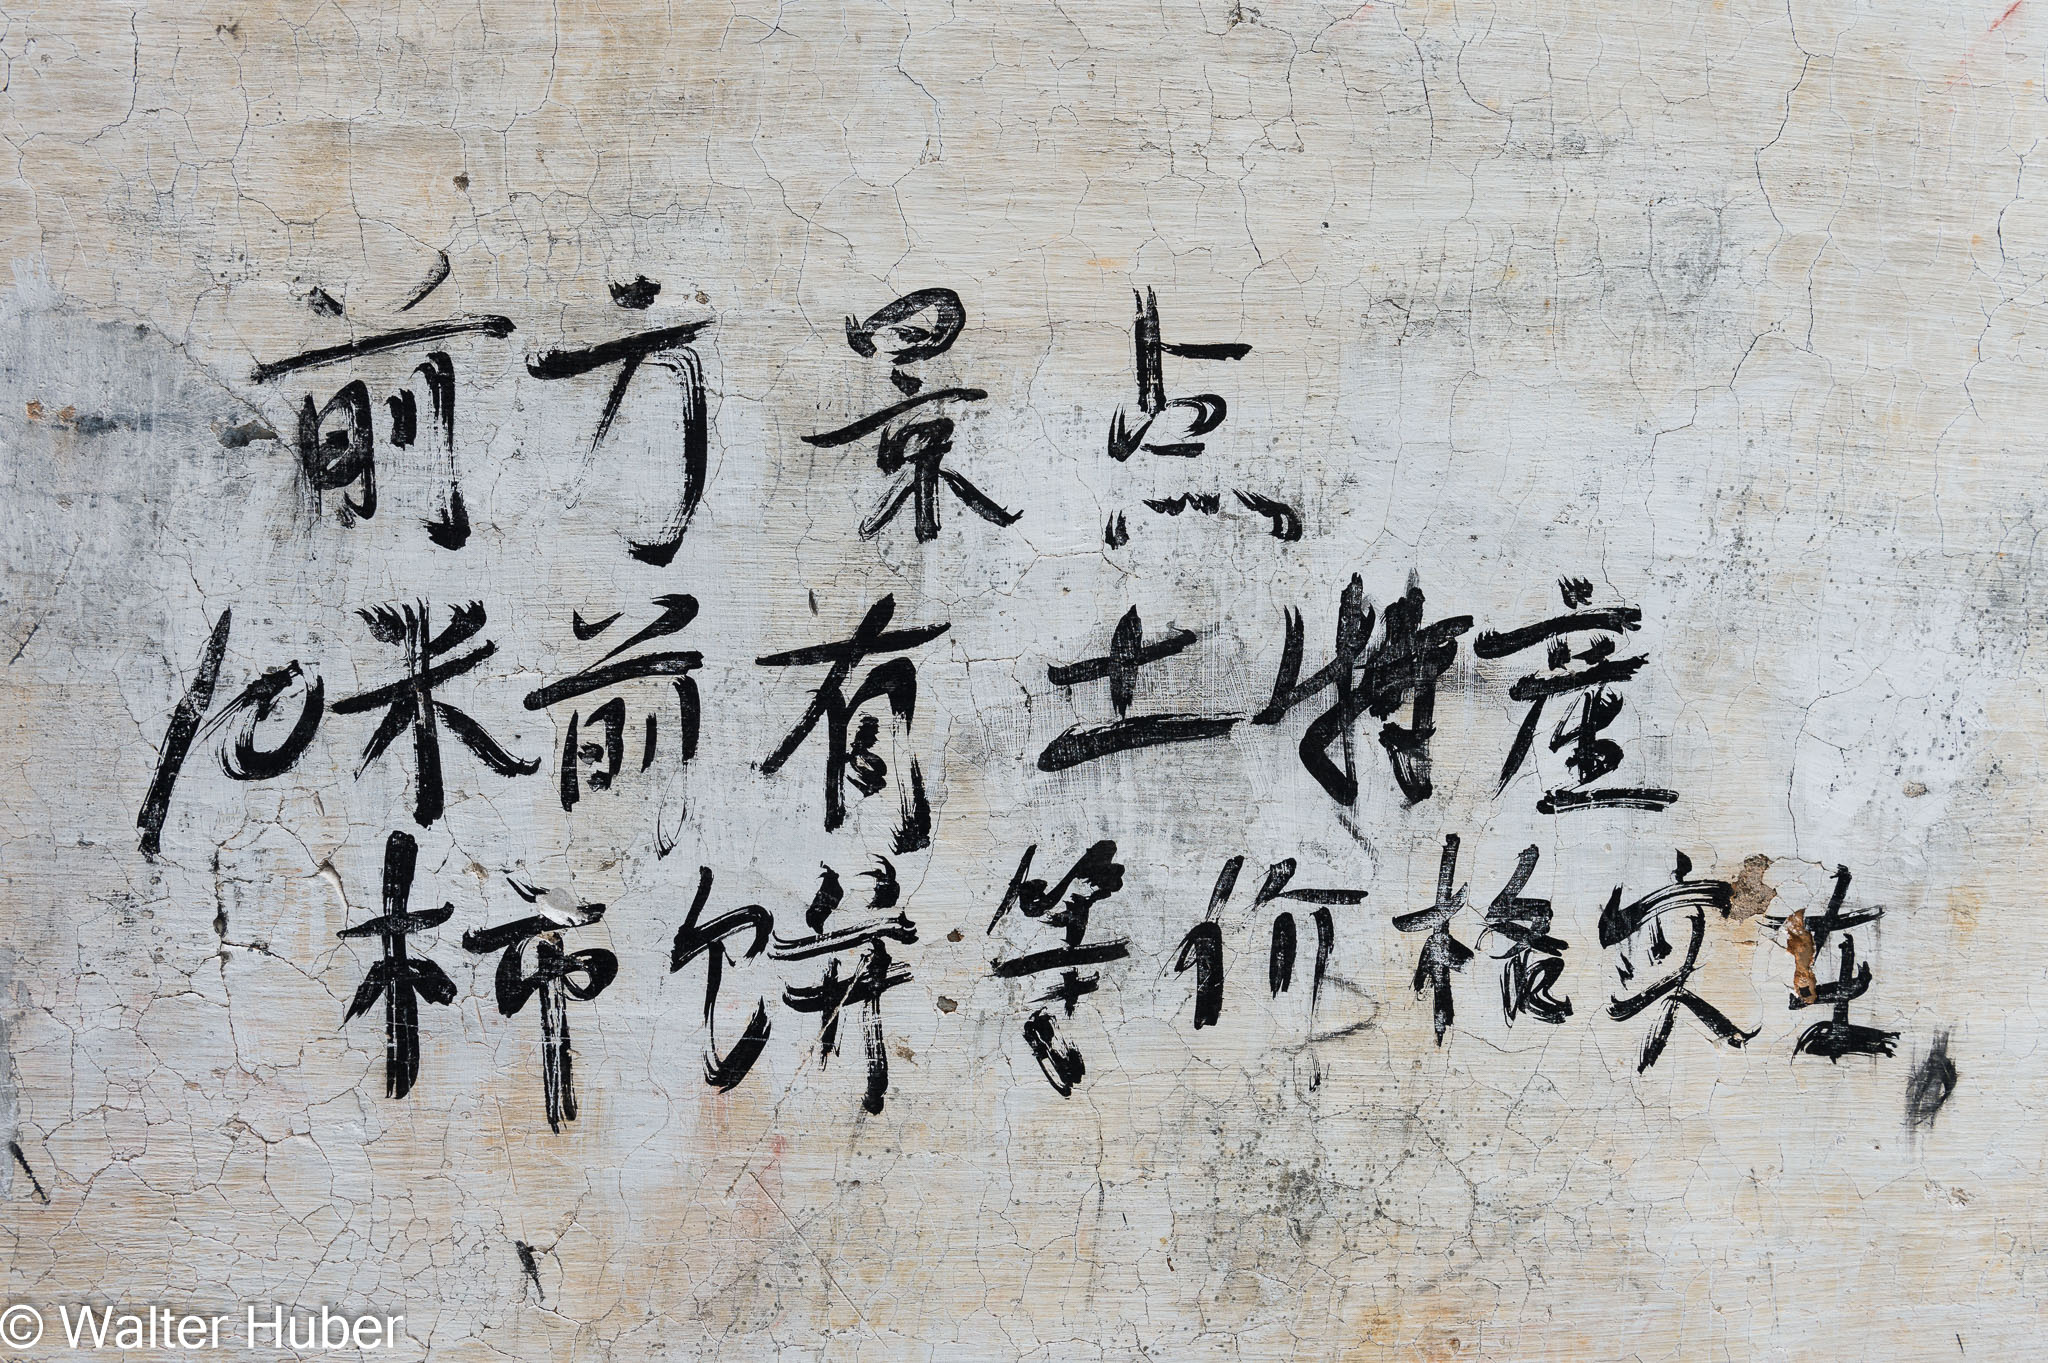 前方景点
10米前有土特産
柿饼等价格实在
© Walter Huber